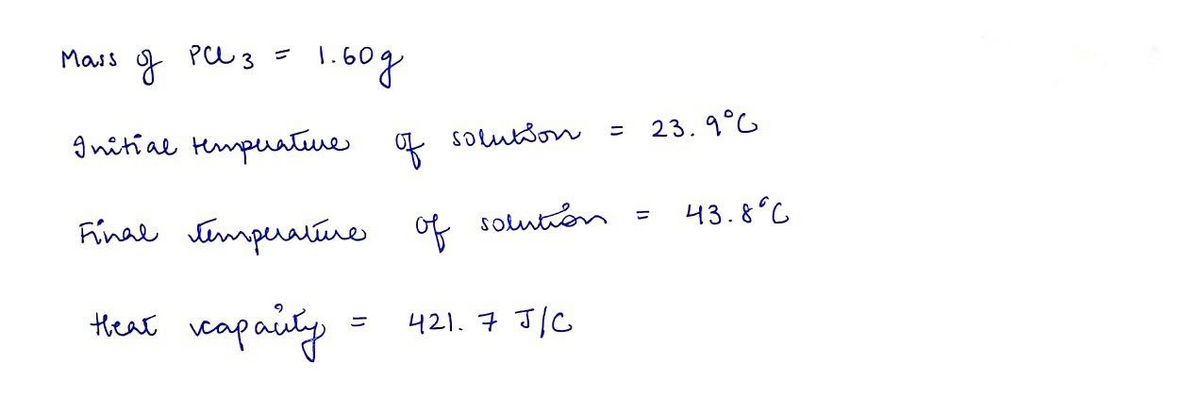 Mass of PCl3 = 1.60g
Initial temperature of solution = 23.9°C
Final temperature of solution = 43.8°C
Heat capacity = 421.7 J/C